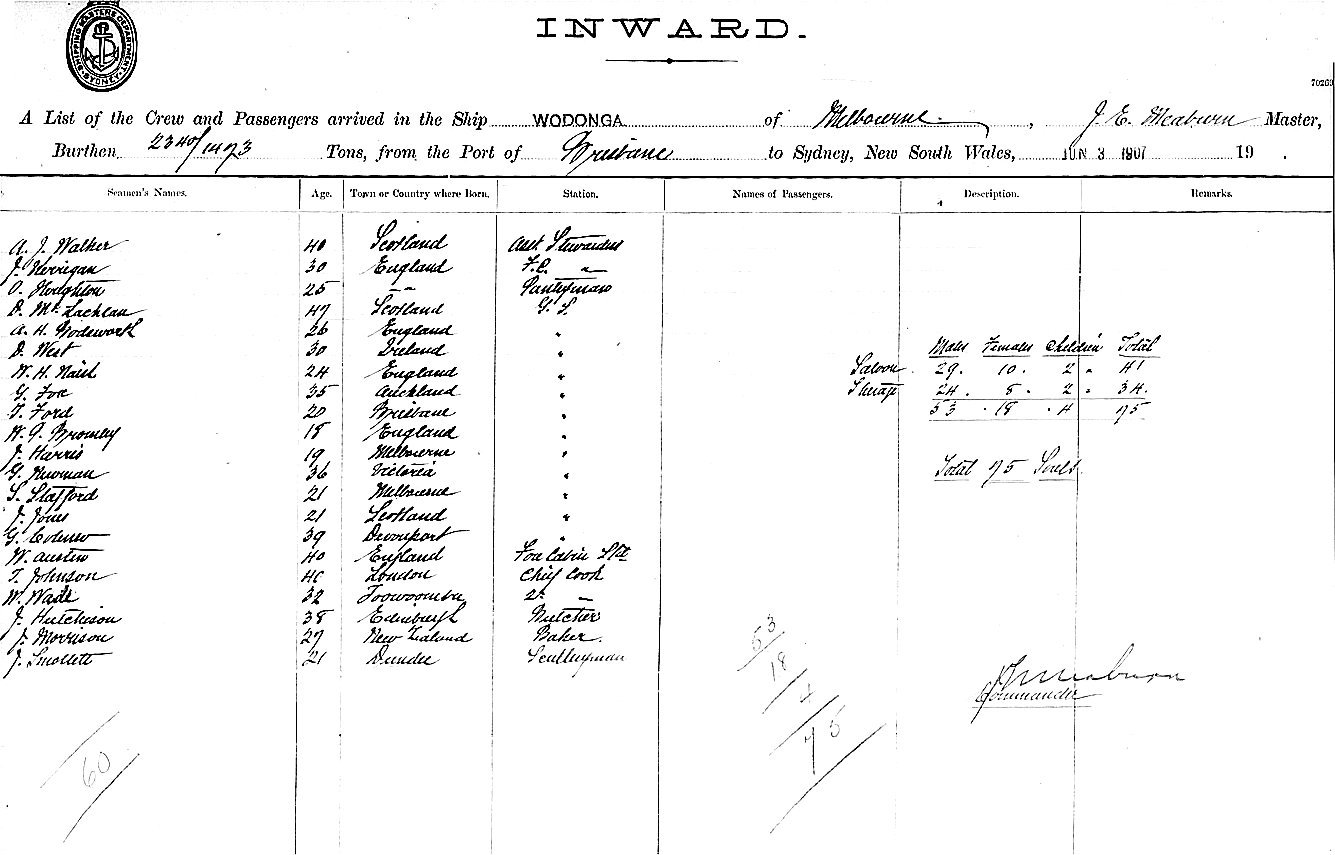 SHIPPING MASTERS DEPARTMENT SYDNEY
INWARD.
70269
A List of the Crew and Passengers arrived in the Ship WODONGA of Melbourne, J. E. Meaburn Master,
Burthen 2340/1473 Tons, from the Port of Brisbane to Sydney, New South Wales, JUN 3 1907 19 .
Seamen's Names. Age. Town or Country where Born. Station. Names of Passengers. Description. Remarks.
A. J. Walker 40 Scotland Asst. Stewardess
J. Horrigan 30 England F.C. "
O. Hoighton 25 " Pantryman
D. McLachlan 47 Scotland G. S.
A. H. Wodsworth 26 England "
D. West 30 Ireland "
Males Females Children Total
W. H. Naish 24 England "
Saloon 29. 10. 2 " 41
G. Fox 35 Auckland "
Steerage 24. 8. 2 " 34.
T. Ford 20 Brisbane "
53 . 18 . 4 75
W. G. Bromley 18 England "
J. Harris 19 Melbourne "
G. Newman 36 Victoria "
Total 75 Souls.
S. Stafford 21 Melbourne "
J. Jones 21 Scotland "
G. 39 Devonport "
W. Austin 40 England Fore Cabin Std
T. Johnson 40 London Chief Cook
W. Wade 32 Toowoomba 2d "
J. Hutchison 38 Edinburgh Butcher
J. Morrison 27 New Zealand Baker.
J. Smollett 21 Dundee Scullyman
53
18
4
75
J E Meaburn
Commander
60